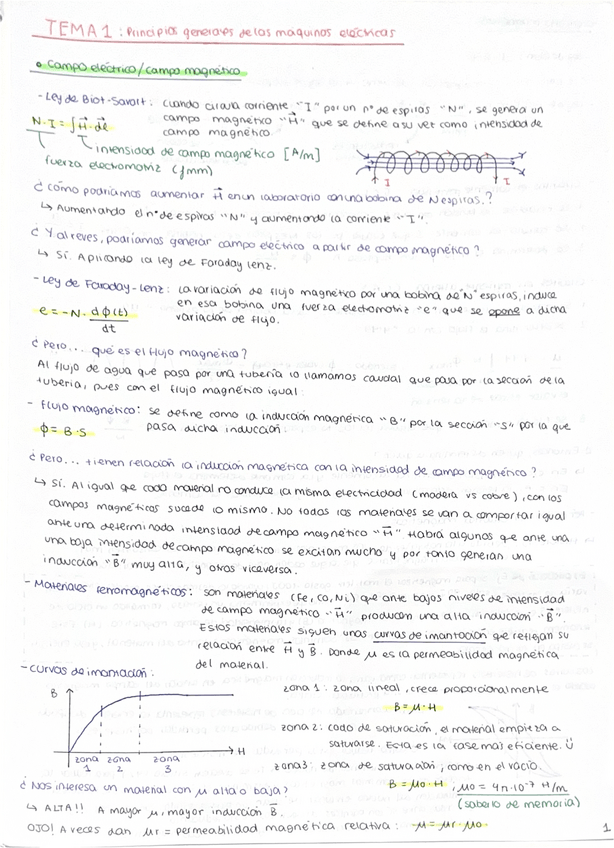 TEMA 1: Principios generales de las maquinas eléctricas
• Campo eléctrico/campo magnético
- Ley de Biot-Savart: cuando circula corriente "I" por un nº de espiras "N", se genera un
N·I = ∫H⃗·dℓ⃗ campo magnético "H⃗" que se define a su vez como intensidad de
campo magnético.
intensidad de campo magnético [A/m]
fuerza electromotriz (fmm)
I I
¿Cómo podríamos aumentar H⃗ en un laboratorio con una bobina de N espiras?
↳ Aumentando el nº de espiras "N" y aumentando la corriente "I".
¿Y al reves, podríamos generar campo eléctrico a partir de campo magnético?
↳ Sí. Aplicando la ley de Faraday Lenz.
- Ley de Faraday-Lenz: la variación de flujo magnético por una bobina de "N" espiras, induce
e = -N· dϕ(t)/dt en esa bobina una fuerza electomotriz "e" que se opone a dicha
variación de flujo.
¿Pero... qué es el flujo magnético?
Al flujo de agua que pasa por una tubería lo llamamos caudal que pasa por la sección de la
tubería, pues con el flujo magnético igual:
- Flujo magnético: se define como la inducción magnética "B" por la sección "S" por la que
ϕ = B·S pasa dicha inducción.
¿Pero... tienen relación la inducción magnética con la intensidad de campo magnético?
↳ Sí. Al igual que cada material no conduce la misma electricidad (madera vs cobre), con los
campos magnéticos sucede lo mismo. No todos los materiales se van a comportar igual
ante una determinada intensidad de campo magnético "H⃗". Habrá algunos que ante una
una baja intensidad de campo magnético se excitan mucho y por tanto generan una
inducción "B⃗" muy alta, y otros viceversa.
- Materiales ferromagnéticos: son materiales (Fe, Co, Ni) que ante bajos niveles de intensidad
de campo magnético "H⃗" producen una alta inducción "B⃗".
Estos materiales siguen unas curvas de imantación que reflejan su
relación entre H⃗ y B⃗. Donde μ es la permeabilidad magnética
del material.
- Curvas de imantación:
B
H
zona 1 zona 2 zona 3
zona 1: zona lineal, crece proporcionalmente
B = μ·H
zona 2: codo de saturación, el material empieza a
saturarse. Esta es la fase más eficiente. Ü
zona 3: zona de saturación, como en el vacío.
B = μ0·H, μ0 = 4π·10⁻⁷ H/m
(saberlo de memoria)
¿Nos interesa un material con μ alta o baja?
↳ ALTA!! A mayor μ, mayor inducción B⃗.
OJO! A veces dan μr = permeabilidad magnética relativa: μ = μr·μ0
1